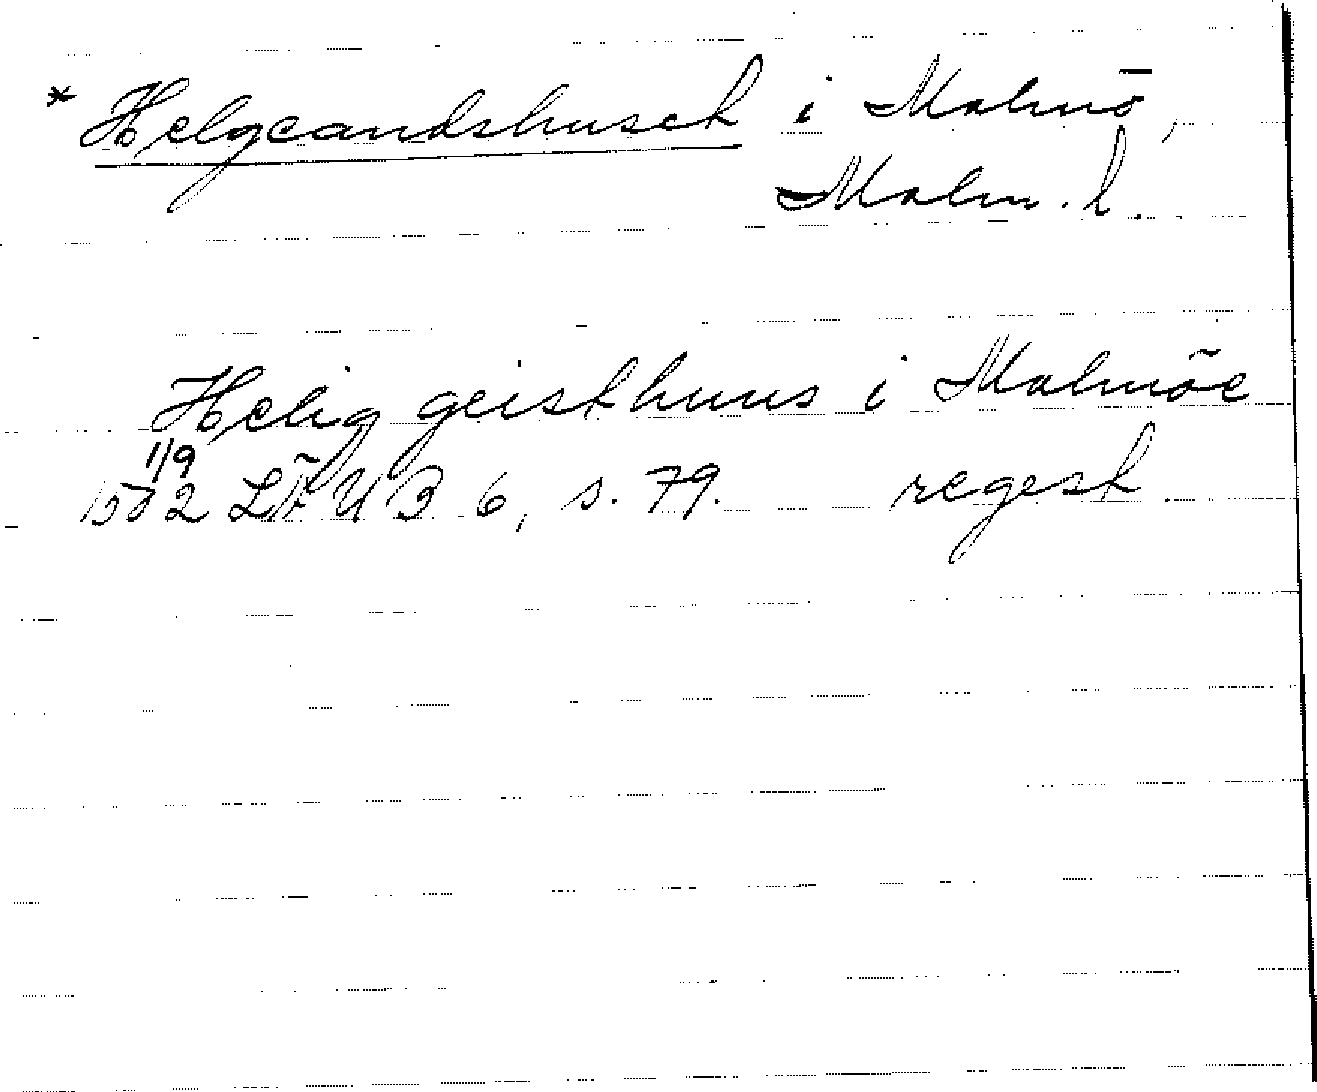 * Helgeandshuset i Malmö,
Malm. l.
Helig geisthuus i Malmöe
1/9
1502 LÄUB 6, s. 79. regest